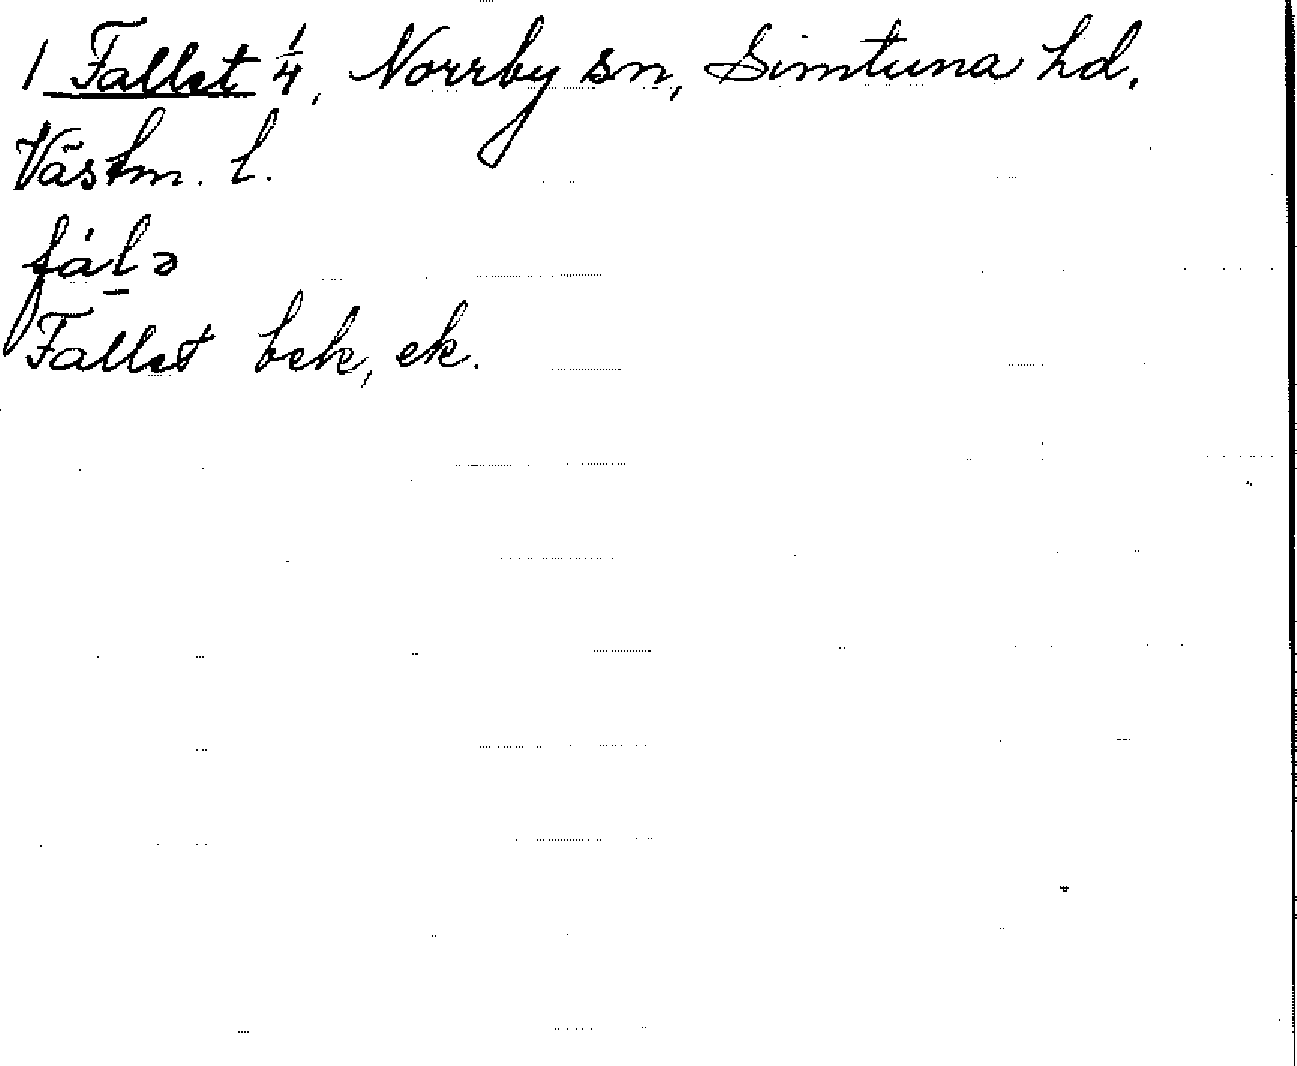 1 Fallet 1/4, Norrby sn, Simtuna hd,
Västm. l.
fàl̠ə
Fallet bek, ek.